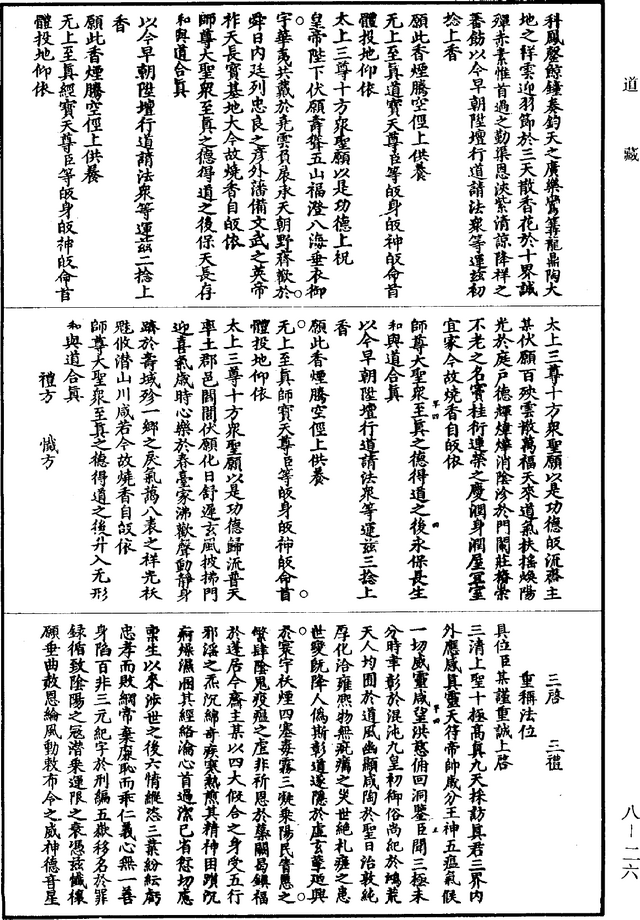 道藏
科風馨鯨鐘奏鈞天之廣樂鸞篝龍鼎陶大
地之祥雲迎羽節於三天散香花於十界誠
殫赤素惟首過之勤渠恩浹紫清諒降祥之
蕃飭以今早朝陞壇行道請法衆等運茲初
捻上香
願此香煙騰空徑上供養
无上至真道寶天尊臣等皈身皈神皈命首
體投地仰依
太上三尊十方衆聖願以是功德上祝
皇帝陛下伏願壽聳五山福澄八海垂衣御
宇華夷共戴於堯雲負扆承天朝野蒋歡於
舜日內廷列忠良之彥外藩備文武之英帝
祚天長寶基地大今故燒香自皈依
師尊大聖衆至真之德得道之後保天長存
和與道合真
以今早朝陞壇行道請法衆等運茲二捻上
香
願此香煙騰空徑上供養
无上至真經寶天尊臣等皈身皈神皈命首
體投地仰依
太上三尊十方衆聖願以是功德皈流齋主
某伏願百殃雲散萬福天來道氣扶搖煥陽
光於庭戶德輝煒燁消陰沴於門闌莊椿崇
不老之名竇桂衍連榮之慶潤身潤屋宜室
宜家今故燒香自皈依
師尊大聖衆至真之德得道之後永保長生
和與道合真
以今早朝陞壇行道請法衆等運茲三捻上
香
願此香煙騰空徑上供養
无上至真師寶天尊臣等皈身皈神皈命首
體投地仰依
太上三尊十方衆聖願以是功德歸流普天
率土郡邑閭閻伏願化日舒遲玄風披拂門
迎喜氣歲時心樂於春臺家沸歡聲動靜身
躋於壽域殄一鄉之戾氣藹八表之祥光妖
魁收潛山川咸若今故燒香自皈依
師尊大聖衆至真之德得道之後升入无形
和與道合真
禮方 懺方
三啓 三禮
重稱法位
具位臣某謹重誠上啓
三清上聖十極高真九天採訪真君三界內
外應感真靈天符帝師歲分王神五瘟氣候
一切威靈咸望洪慈俯回洞鑒臣聞三極未
分時幸彰於混沌九皇初御俗尚紀於鴻荒
天人均囿於道風幽顯咸陶於聖日治敦純
厚化洽雍熙物無疵癘之災世絕札瘥之患
世變既降人僞斯彰道遂隱於虛玄孽迺興
於寰宇妖煙四塞毒霧三凝乘陽民眚慝之
繁肆陰鬼疫瘟之虐非祈恩於蘂闕曷鎮福
於蓬居今齋主某以四大假合之身受五行
邪淫之炁沉綿奇疾寒熱煎其精神困躓沉
痾燥濕困其經絡瀹心首過潔已省愆切應
稟生以來涉世之後六情縱恣三業紛紜虧
忠孝而敗綱常棄廉恥而乖仁義心無一善
身陷百非三元紀字於刑編五嶽移名於罪
録循致陰陽之寇潛乘運限之衰憑茲懺禳
願垂曲赦恩綸風動敷布今之威神德音星
八-二六